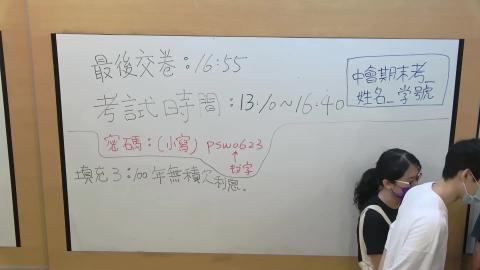 最後交卷:16:55
考試時間:13:10~16:40
中會期末考_
姓名_學號
密碼:(小寫) psw0623
數字
填充3:100年無積欠利息。